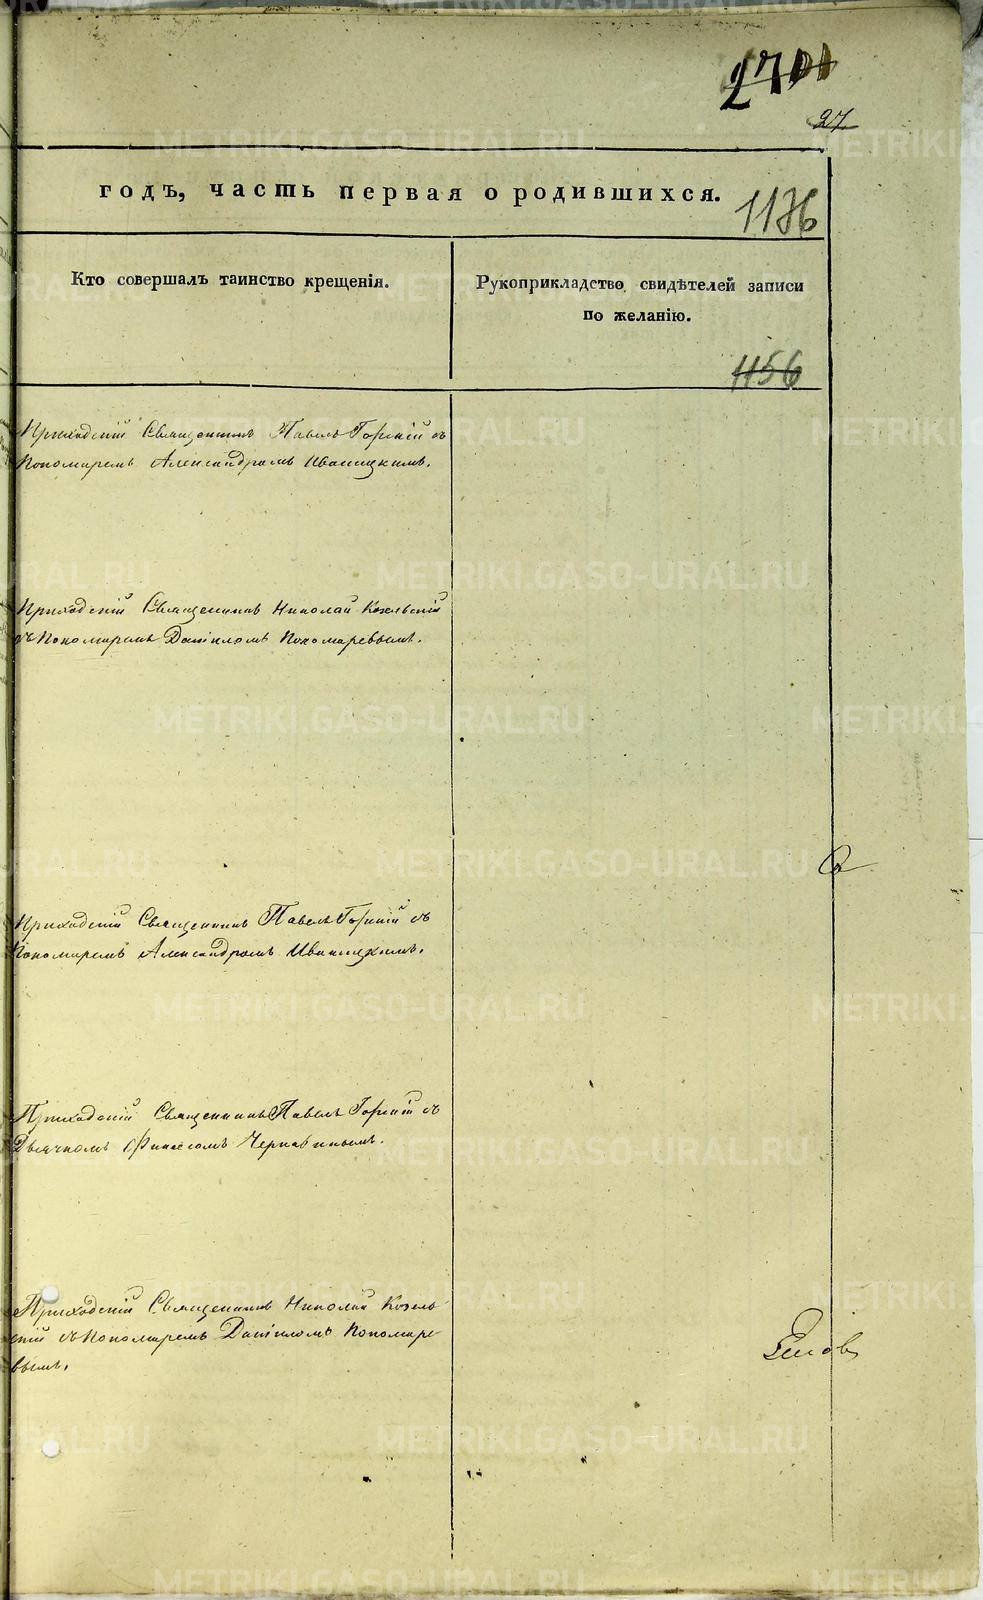 27
1136
годъ, часть первая о родившихся.
Кто совершалъ таинство крещенія.
Рукоприкладство свидѣтелей записи
по желанію.
1156
Приходскій Священникъ Павелъ Горскій съ
Пономаремъ Александромъ Иваницкимъ.
Приходскій Священникъ Николай Козельскій
съ Пономаремъ Даніиломъ Пономаревымъ.
Приходскій Священникъ Павелъ Горскій съ
Пономаремъ Александромъ Иваницкимъ.
Приходскій Священникъ Павелъ Горскій съ
Дьячкомъ
Приходскій Священникъ Николай Козель
скій съ Пономаремъ Даніиломъ Пономаре
вымъ.
METRIKI.GASO-URAL.RU